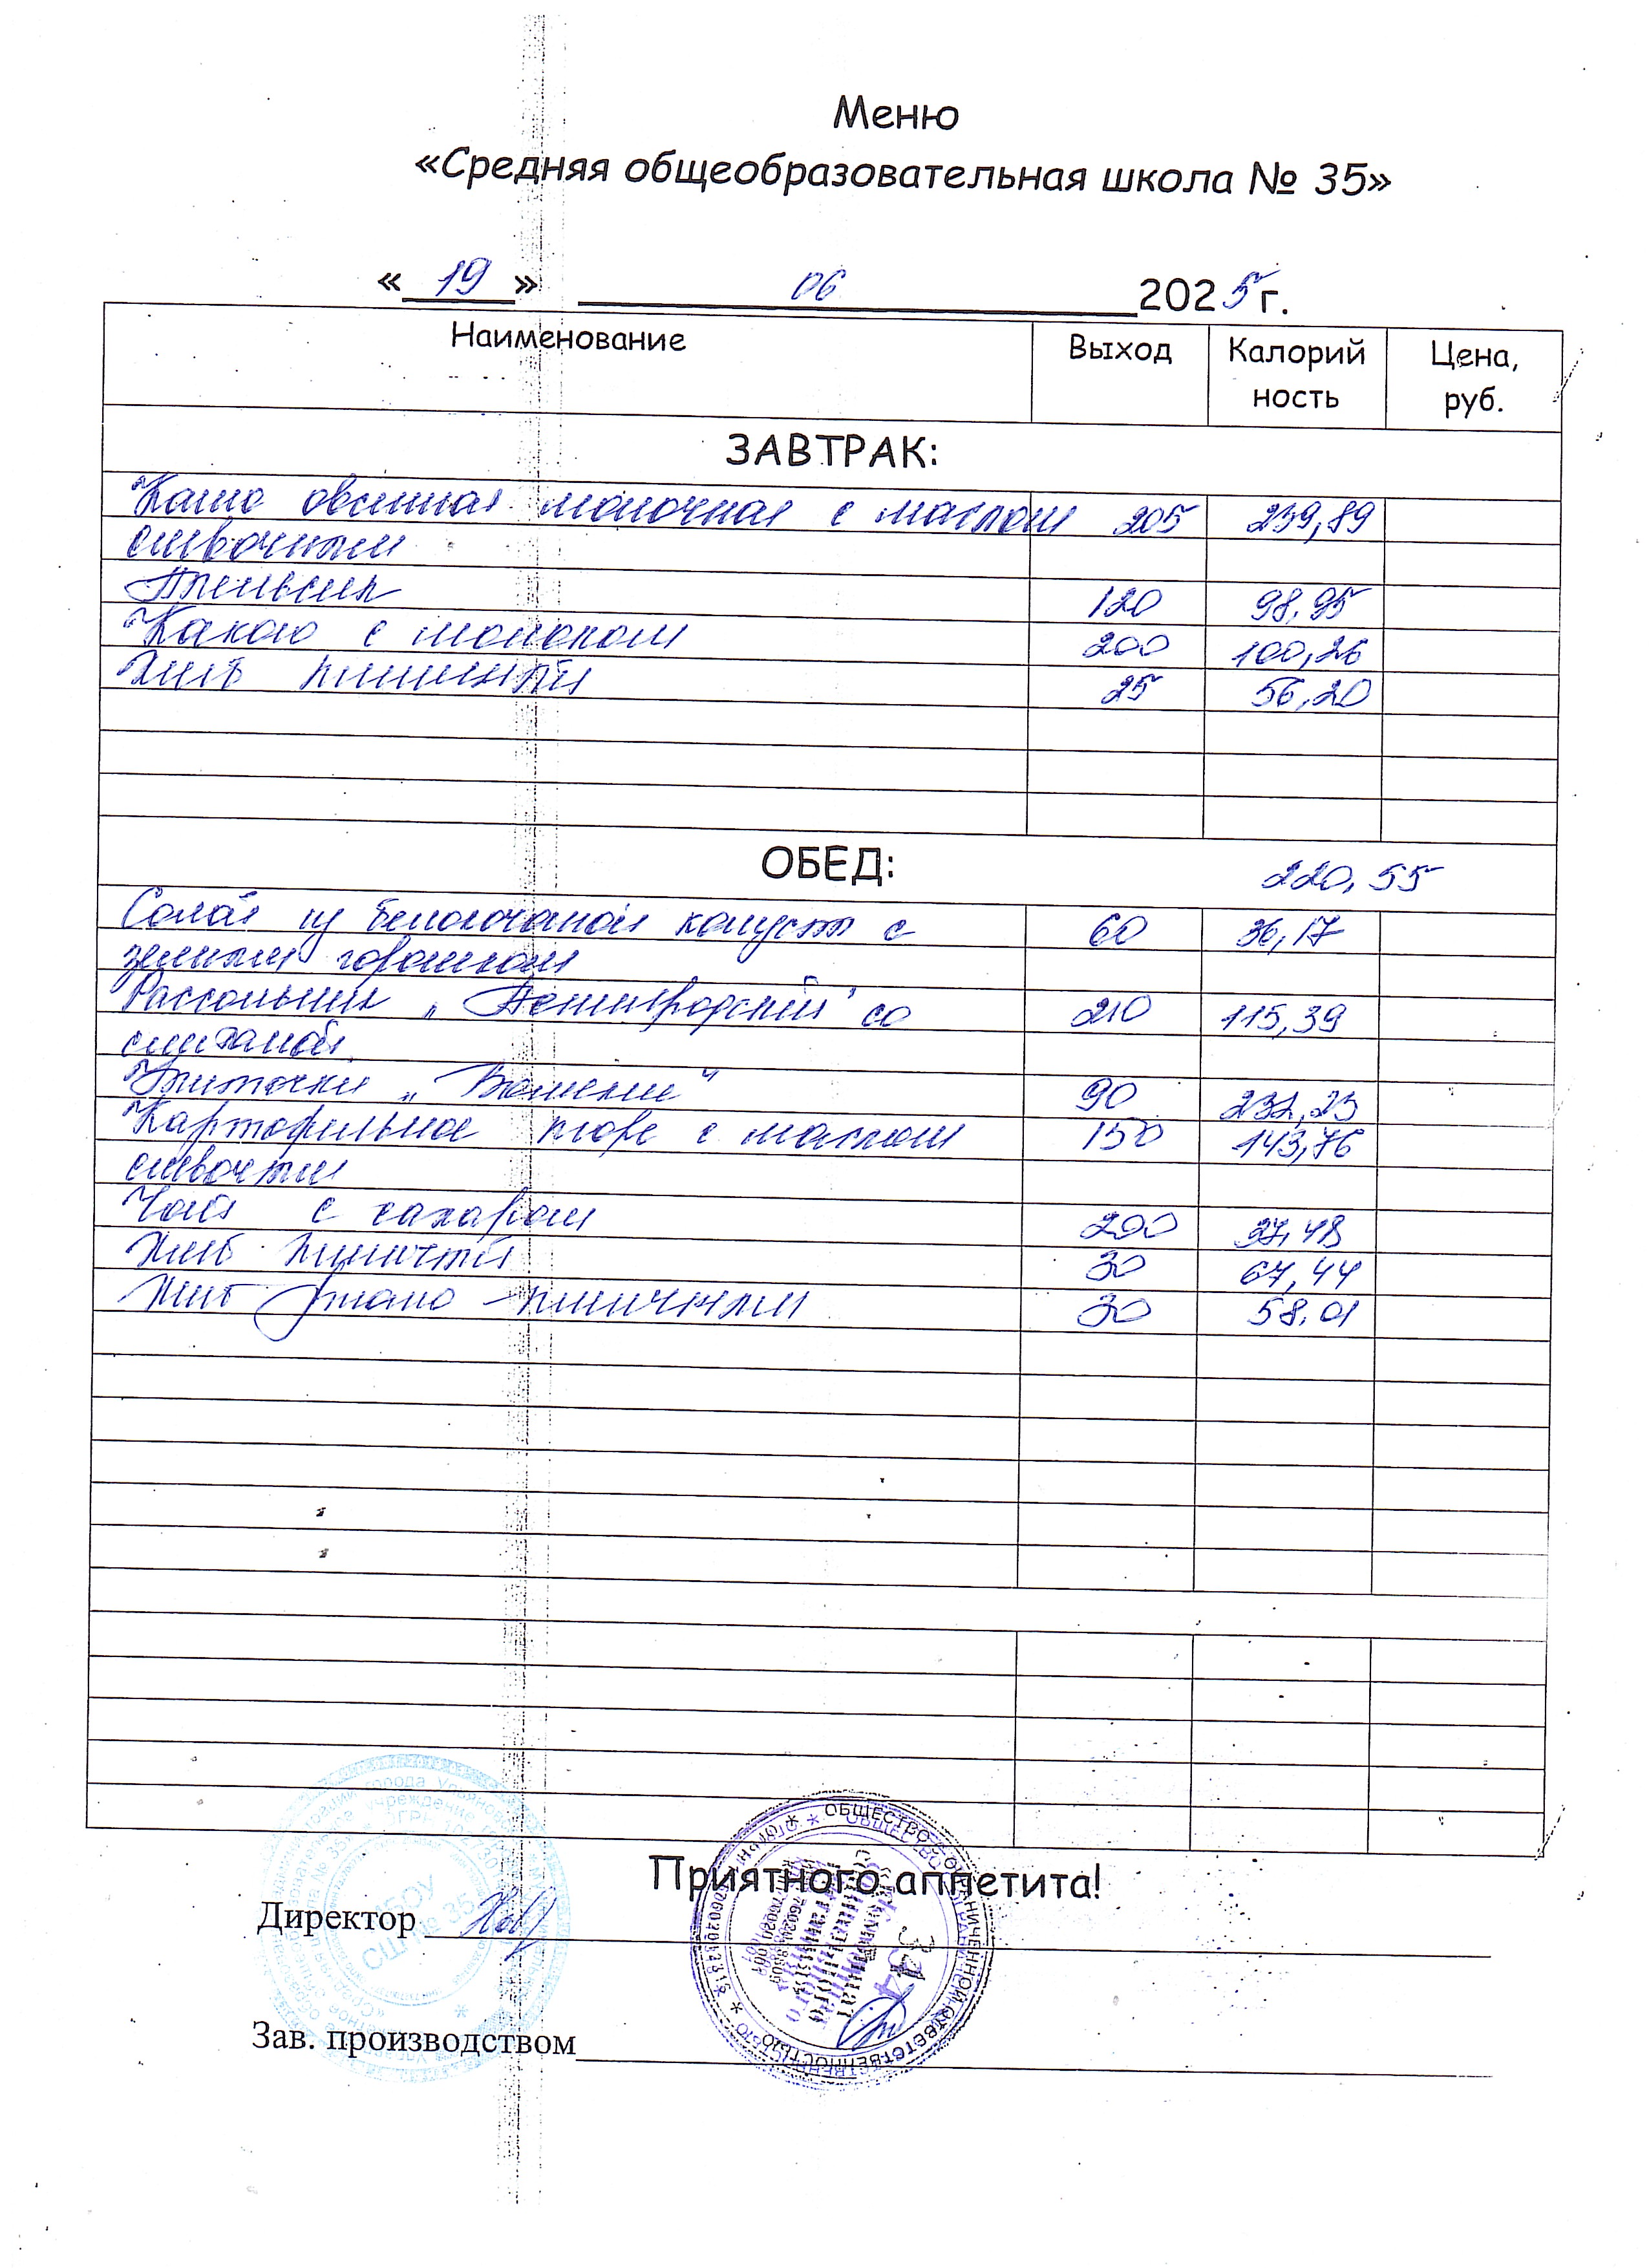 Меню
«Средняя общеобразовательная школа № 35»
« 19 » 06 2025 г.
Наименование Выход Калорий Цена,
ность руб.
ЗАВТРАК:
Каша овсяная молочная с маслом 205 239,89
сливочным
Апельсин 120 98,95
Какао с молоком 200 100,26
Хлеб пшеничный 25 56,20
ОБЕД: 220,55
Салат из белокочанной капусты с 60 36,17
зеленым горошком
Рассольник „Ленинградский" со 210 115,39
сметаной
90 232,23
Картофельное пюре с маслом 150 143,76
сливочным
Чай с сахаром 200 37,48
Хлеб пшеничный 30 67,44
Хлеб ржано-пшеничный 30 58,01
Приятного аппетита!
Директор
Зав. производством
ОБЩЕСТВО С ОГРАНИЧЕННОЙ ОТВЕТСТВЕННОСТЬЮ